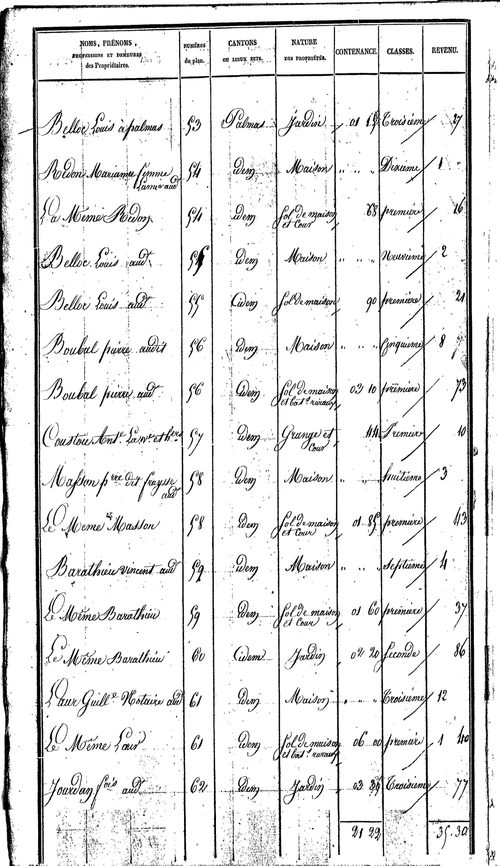 NOMS, PRÉNOMS,
PROFESSIONS ET DEMEURES
des Propriétaires.
NUMÉROS
du plan.
CANTONS
OU LIEUX DITS.
NATURE
DES PROPRIÉTÉS.
CONTENANCE.
CLASSES.
REVENU.
Belloc Louis à palmas 53 Palmas Jardin 01 15 Troisième 27
Redon Marianne femme
aud 54 idem Maison " " " Dixième 1 "
La Même Redon 54 idem Sol de maison
et Cour 68 première 16
Belloc Louis aud. 55 idem Maison " " " Neuvième 2 "
Belloc Louis aud. 55 idem Sol de maison 90 première 21
Boubal pierre audit 56 idem Maison " " " Cinquième 8 "
Boubal pierre aud. 56 idem Sol de maison
et bat.t ruraux 03 10 première 73
Coustou Ant.e La ve et hers 57 idem Grange et
Cour 44 Premiere 10
Masson pre dit
aud 58 idem Maison " " huitième 3
Le Meme Masson 58 idem Sol de maison
et Cour 01 85 première 43
Barathieu vincent aud 59 idem Maison " " " Septième 4
Le Même Barathieu 59 idem Sol de maison
et Cour 01 60 première 37
Le Même Barathieu 60 idem Jardin 02 20 Seconde 86
Laur Guill.e Notaire aud 61 idem Maison " " " Troisième 12
Le Même Laur 61 idem Sol de maison
et bat.t ruraux 06 00 première 1 40
Jourdan fois aud. 62 idem Jardin 03 35 Troisieme 77
21 22 35.30